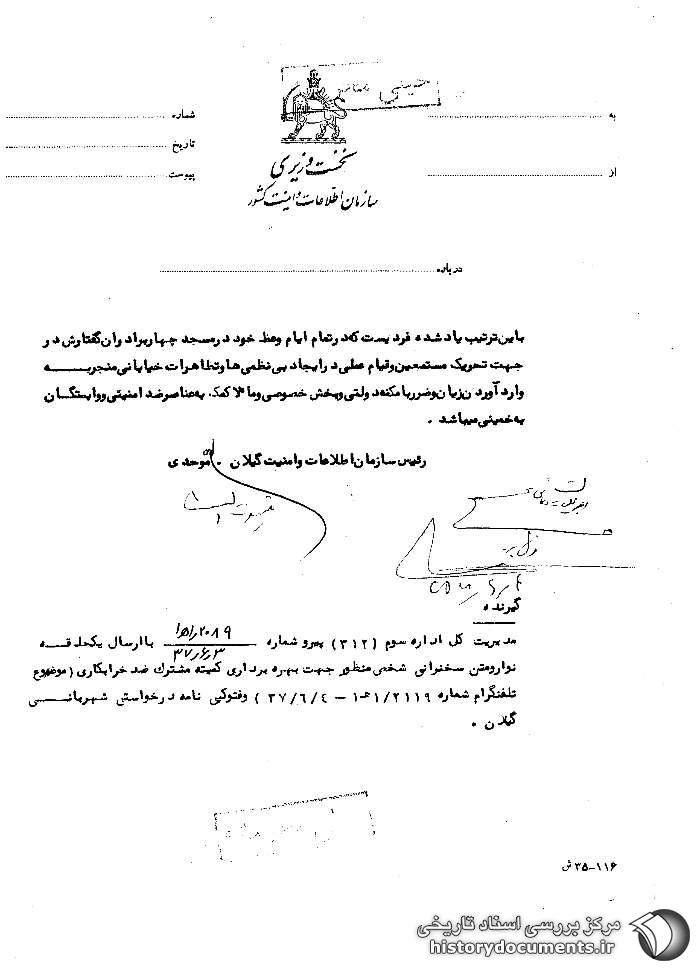 خمینی
به
شماره
تاریخ
از
پیوست
نخست وزیری
سازمان اطلاعات و امنیت کشور
درباره
باین ترتیب یاد شده فردیست که در تمام ایام وعظ خود در مسجد چهار برادران گفتارش در
جهت تحریک مستمعین و قیام عملی در ایجاد بی نظمی ها و تظاهرات خیابانی منجر به
وارد آوردن زیان و ضرر با مکنه دولتی و بخش خصوصی و مآلا کمک به عناصر ضد امنیتی و وابستگان
به خمینی میباشد .
رئیس سازمان اطلاعات و امنیت گیلان . موحدی
گیرنده
مدیریت کل اداره سوم (۳۱۲) پیرو شماره ۲۰۸۹/۱ه۱
۳۷/۶/۳
با ارسال یکحلقه
نوار و متن سخنرانی شخص منظور جهت بهره برداری کمیته مشترک ضد خرابکاری (موضوع
تلفنگرام شماره ۲۱۱۹/ ۱–۰۱ – ۳۷/۶/۴ ) و فتوکپی نامه درخواستی شهربانی
گیلان .
۱۱۶–۳۵ ش
مرکز بررسی اسناد تاریخی
historydocuments.ir